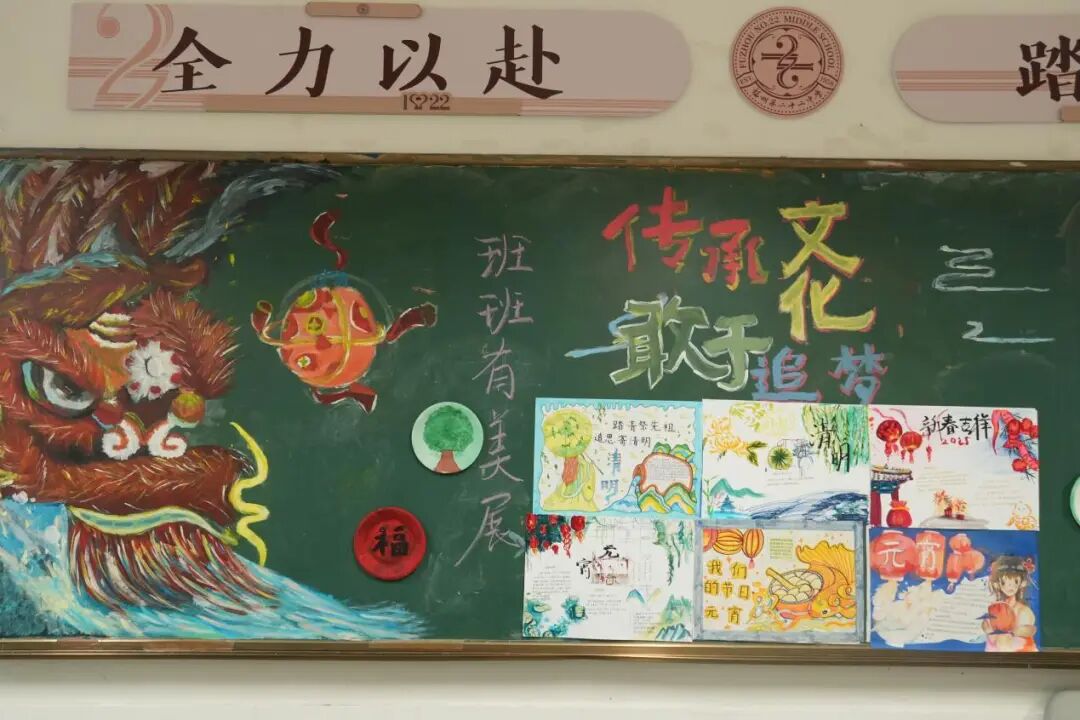 全力以赴
1922
FUZHOU NO.22 MIDDLE SCHOOL
福州第二十二中学
踏
班班有美展
传承文化
敢于追梦
福
踏青祭先祖
追思寄清明
清明
清明
新春吉祥
2025
元宵
我们
的节日
元宵
元宵